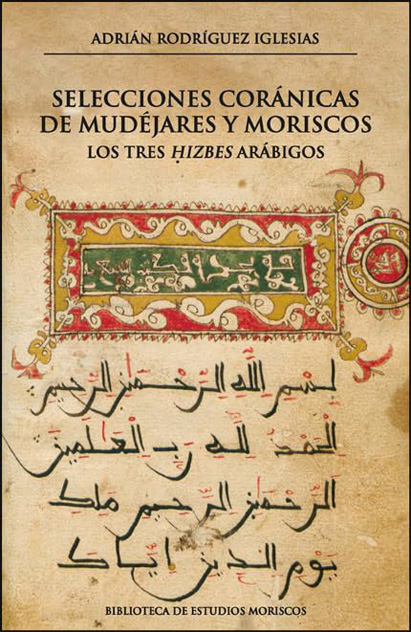 ADRIÁN RODRÍGUEZ IGLESIAS
SELECCIONES CORÁNICAS
DE MUDÉJARES Y MORISCOS
LOS TRES ḤIZBES ARÁBIGOS
بسم الله الرحمن الرحيم
الحمد لله رب العلمين
الرحمن الرحيم ملك
يوم الدين اياك
BIBLIOTECA DE ESTUDIOS MORISCOS